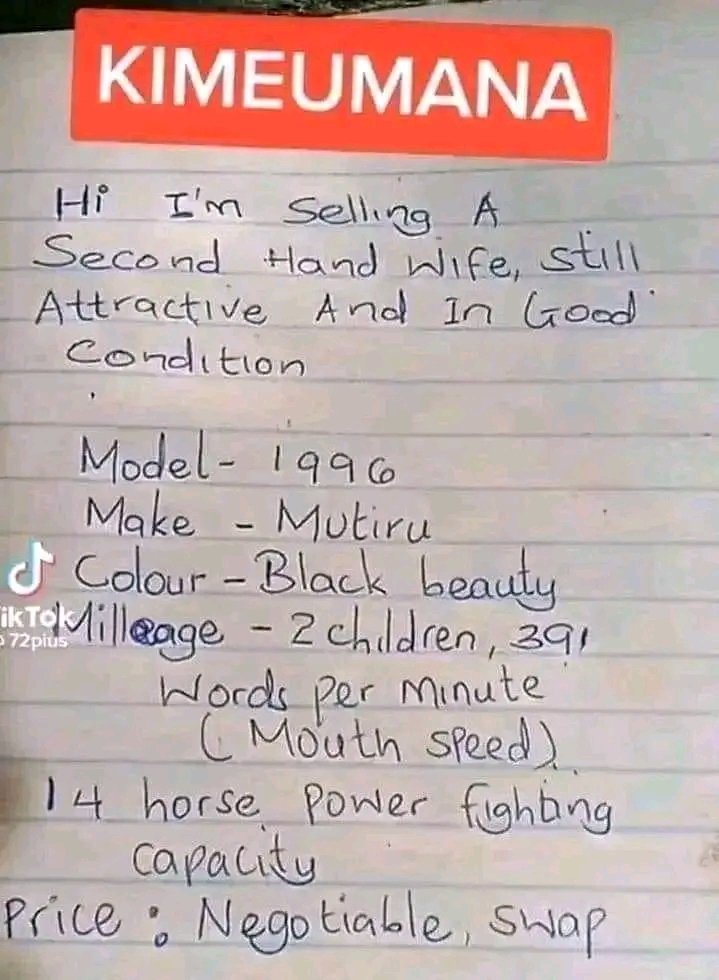 KIMEUMANA
Hi I'm Selling A
Second Hand Wife, Still
Attractive And In Good
Condition
Model - 1996
Make - Mutiru
Colour - Black beauty
ikTok
72pius
Milleage - 2 children, 391
Words per Minute
(Mouth speed)
14 horse power fighting
capacity
Price : Negotiable, swap